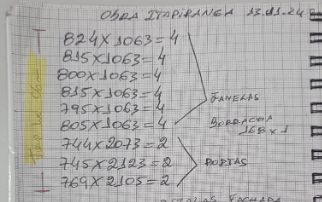 OBRA ITAPIRANGA 13.11.24
824x1063=4
815x1063=4
800x1063=4
815x1063=4
795x1063=4
805x1063=4
JANELAS
BORRACHA
168x1
744x2073=2
745x2123=2
PORTAS
769x2105=2
FACHADA